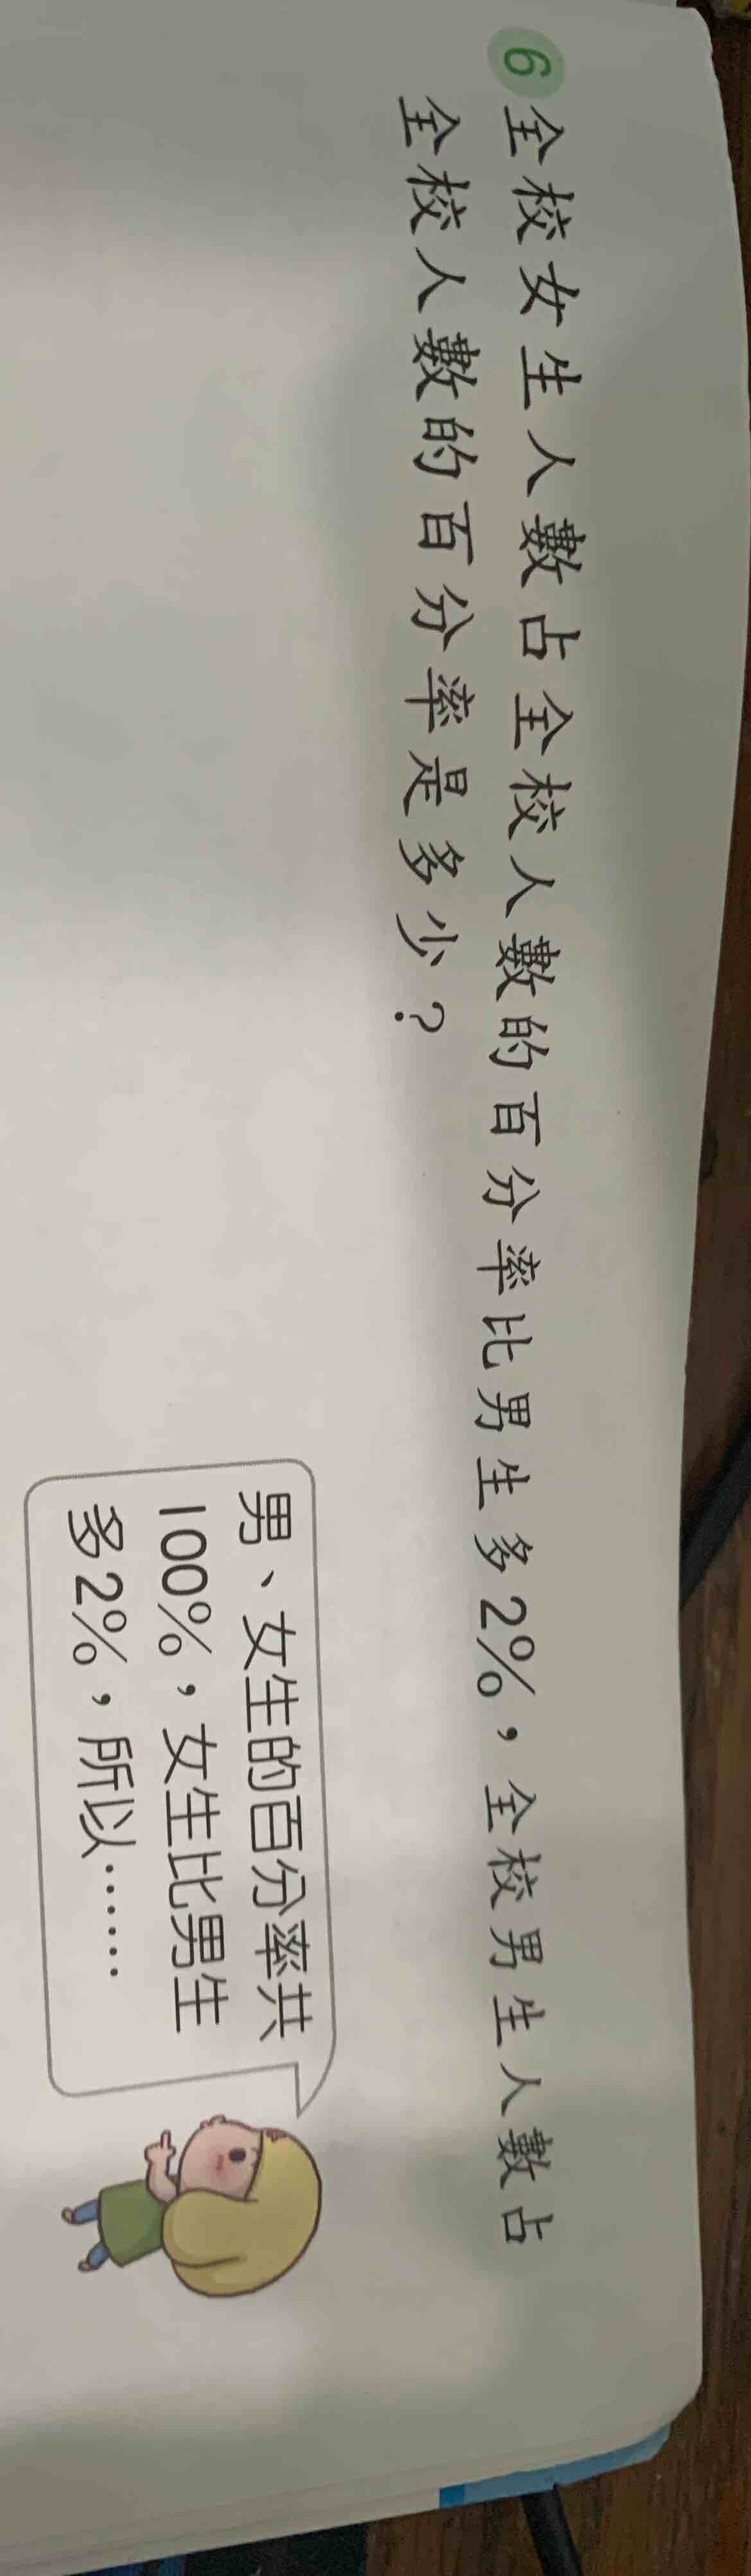 6 全校女生人數占全校人數的百分率比男生多2%,全校男生人數占
全校人數的百分率是多少?
男、女生的百分率共
100%,女生比男生
多2%,所以……